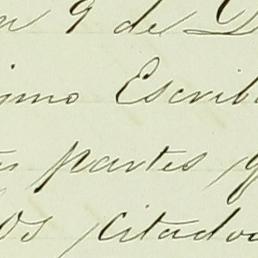 n 9 de D
ismo Escrib
as partes q
os citados